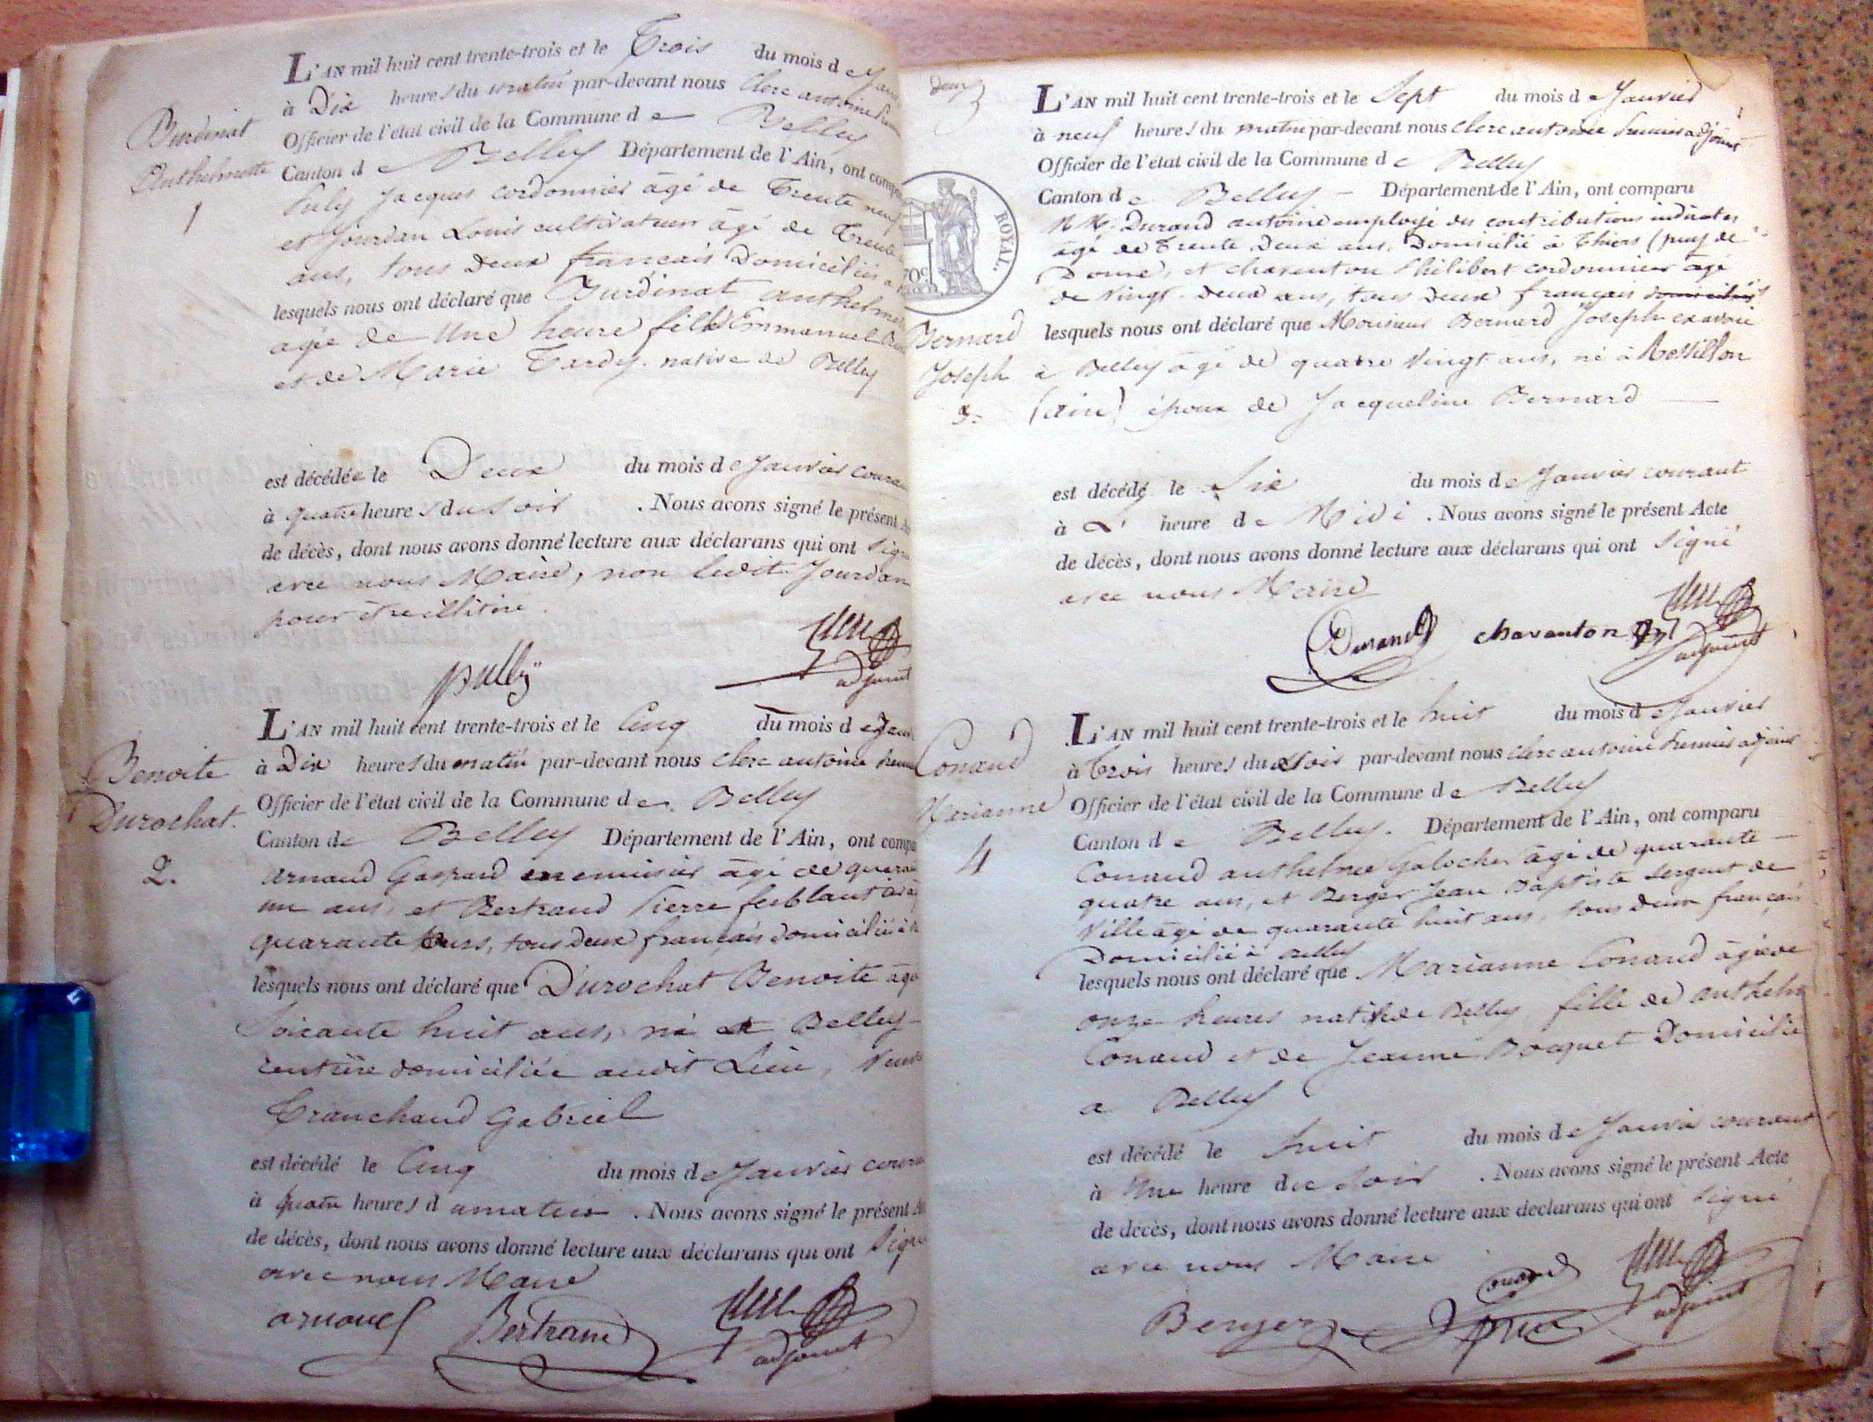 L'AN mil huit cent trente-trois et le Trois du mois d e
à Dix heures du matin par-devant nous Clerc antoine
Officier de l'état civil de la Commune d e Belley
Burdinat
Canton d e Belley Département de l'Ain, ont
Anthelmette
1
Jacques cordonnier âgé de Trente neuf
et Jourdan Louis cultivateur âgé de Trente
ans, tous deux français Domiciliés
lesquels nous ont déclaré que Burdinat
agée de Une heure fille d'Emmanuel
et de Marie Tardy native de Belley
est décédée le Deux du mois d e Janvier
à quatre heures du soir . Nous avons signé le présent
de décès, dont nous avons donné lecture aux déclarans qui ont
avec nous Maire, non ledit Jourdan
pour être illitiré
pully
adjoint
L'AN mil huit cent trente-trois et le Cinq du mois d e
Benoite
à Dix heures du matin par-devant nous Clerc antoine
Durochat.
Officier de l'état civil de la Commune d e Belley
2.
Canton d e Belley Département de l'Ain, ont
Arnaud Gaspard menuisier âgé de
un ans, et Bertrand Pierre ferblantier
quarante ans, tous deux français domiciliés à
lesquels nous ont déclaré que Durochat Benoite
Soixante huit ans, né à Belley
rentière domiciliée audit Lieu,
Tranchand Gabriel
est décédé le Cinq du mois d e Janvier
à quatre heures d u matin . Nous avons signé le présent
de décès, dont nous avons donné lecture aux déclarans qui ont
avec nous Maire
arnaud Bertrand
adjoint
deux
L'AN mil huit cent trente-trois et le Sept du mois d e Janvier
à neuf heures du matin par-devant nous Clerc antoine Premier adjoint
Officier de l'état civil de la Commune d e Belley
Canton d e Belley Département de l'Ain, ont comparu
ROYAL.
70c
M.M. Durand antoine employé des contributions indirectes
âgé de Trente Deux ans, Domicilié à Thiers (puy de
Dome) et charenton Philibert cordonnier âgé
de Vingt-Deux ans, tous deux français domiciliés
Bernard
Joseph
3.
lesquels nous ont déclaré que Monsieur Bernard Joseph ex avoué
à Belley âgé de quatre Vingt ans, né à Rossillon
(ain) époux de Jacqueline Bernard
est décédé le Six du mois d e Janvier courant
à L' heure d e Midi . Nous avons signé le présent Acte
de décès, dont nous avons donné lecture aux déclarans qui ont Signé
avec nous Maire
Durand charanton
adjoint
L'AN mil huit cent trente-trois et le huit du mois d e Janvier
Conand
à Trois heures du Soir par-devant nous Clerc antoine Premier adjoint
Marianne
Officier de l'état civil de la Commune d e Belley
4
Canton d e Belley. Département de l'Ain, ont comparu
Conand anthelme Galochier âgé de quarante
quatre ans, et Berger Jean Baptiste Sergent de
Ville âgé de quarante huit ans, tous deux français
Domicilié à Belley
lesquels nous ont déclaré que Marianne Conand âgée de
onze heures native de Belley fille de
Conand et de Jeanne Bocquet Domicilié
a Belley
est décédé le huit du mois d e Janvier courant
à Une heure du soir . Nous avons signé le présent Acte
de décès, dont nous avons donné lecture aux déclarans qui ont Signé
avec nous Maire
Berger Conand
adjoint